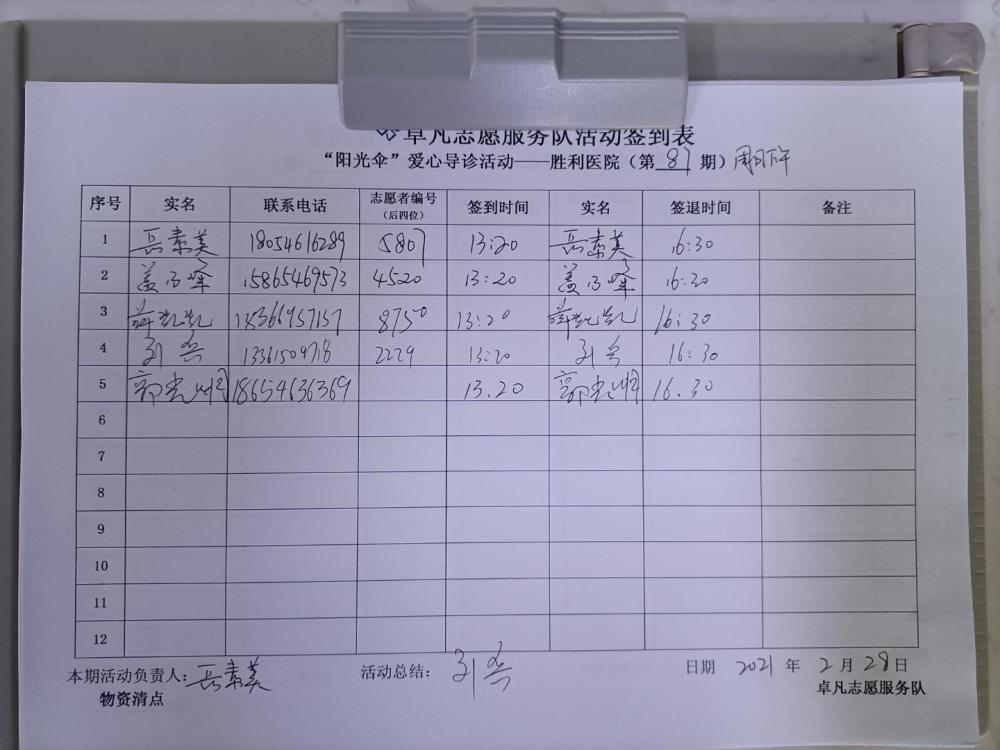 卓凡志愿服务队活动签到表
“阳光伞”爱心导诊活动——胜利医院（第 87 期）
序号 实名 联系电话 志愿者编号（后四位） 签到时间 实名 签退时间 备注
1 岳素美 18054616289 5807 13:20 岳素美 16:30
2 盖乃峰 15865469573 4520 13:20 盖乃峰 16:30
3 薛凯凯 8750 13:20 薛凯凯 16:30
4 刘兵 13361509718 2229 13:20 刘兵 16:30
5 郭光 18654636369 13.20 郭光 16.30
6
7
8
9
10
11
12
本期活动负责人：岳素美 活动总结：刘兵 日期 2021 年 2 月 28 日
物资清点 卓凡志愿服务队